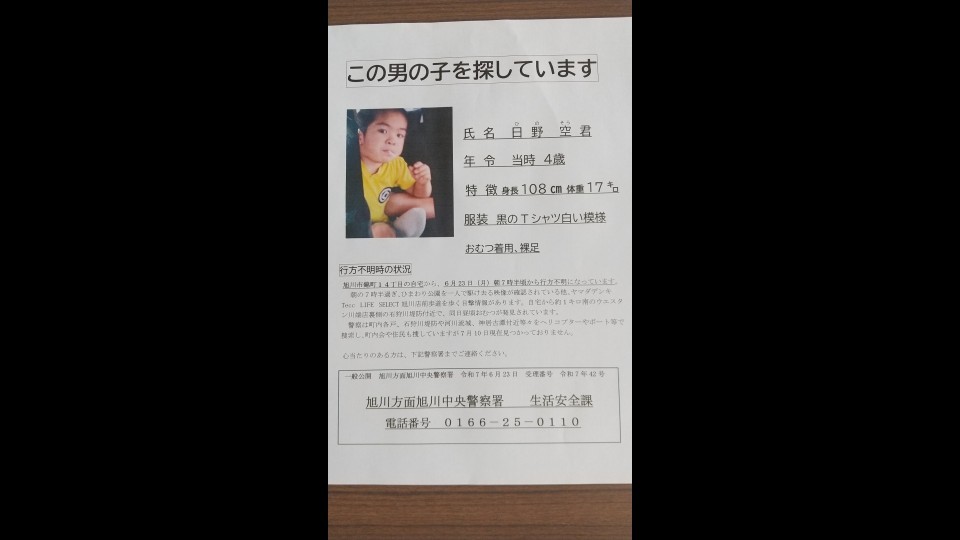 この男の子を探しています
氏 名 日野 空 君
ひ の そら
年 令 当時 4歳
特 徴 身長108㎝ 体重17㌔
服装 黒のTシャツ白い模様
おむつ着用、裸足
行方不明時の状況
１４丁目の自宅から、6月23日（月）朝7時半頃から行方不明になっています。
朝の7時半過ぎ、ひまわり公園を一人で駆け去る映像が確認されている他、ヤマダデンキ
Tecc LIFE SELECT 旭川店前歩道を歩く目撃情報があります。自宅から約1キロ南のウエスタ
ン川端店裏側の石狩川堤防付近で、同日昼頃おむつが発見されています。
警察は町内各戸、石狩川堤防や河川流域、神居古潭付近等々をヘリコプターやボート等で
捜索し、町内会や住民も捜していますが7月10日現在見つかっておりません。
心当たりのある方は、下記警察署までご連絡ください。
一般公開 旭川方面旭川中央警察署 令和7年6月23日 受理番号 令和7年42号
旭川方面旭川中央警察署 生活安全課
電話番号 ０１６６－２５－０１１０